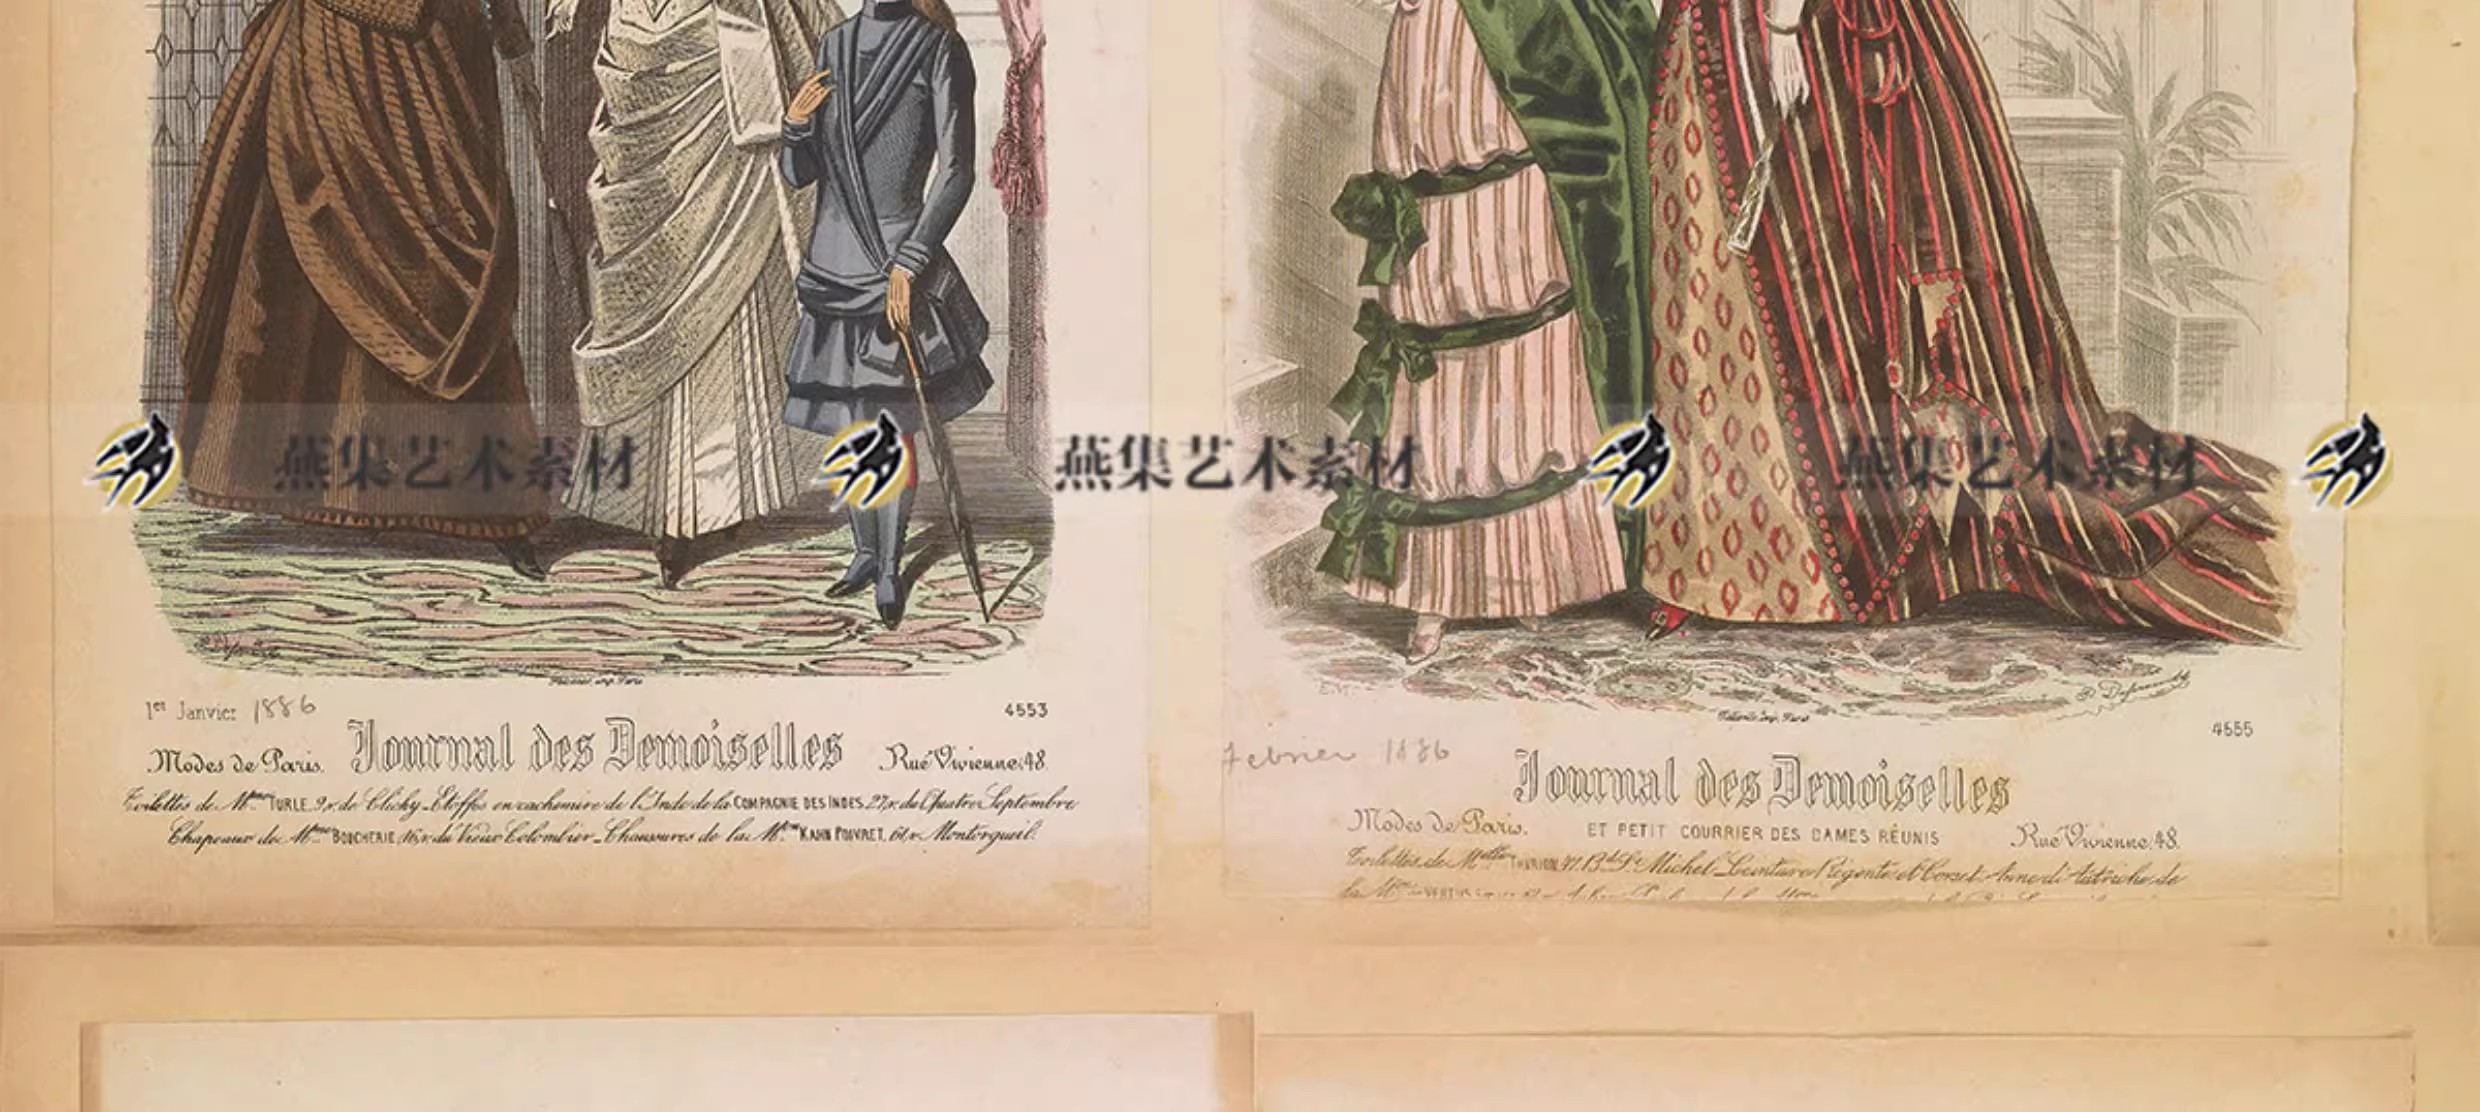 燕集艺术素材 燕集艺术素材 燕集艺术素材
1er Janvier 1886
4553
Journal des Demoiselles
Modes de Paris. Rue Vivienne, 48.
Toilettes de Mme TURLE, 9, r. de Clichy _ Etoffes en cachemire de l'Inde de la COMPAGNIE DES INDES, 27, r. du Quatre Septembre
Chapeaux de Mme BOUCHERIE, 16, r. du Vieux Colombier _ Chaussures de la Mon KAHN POIVRET, 61, r. Montorgueil.
4555
Febrier 1886
Journal des Demoiselles
Modes de Paris. ET PETIT COURRIER DES DAMES RÉUNIS Rue Vivienne, 48.
Toilettes de Melles THIRION, 47, Bd St Michel _ Ceinture Régente et Corset Anne d'Autriche de